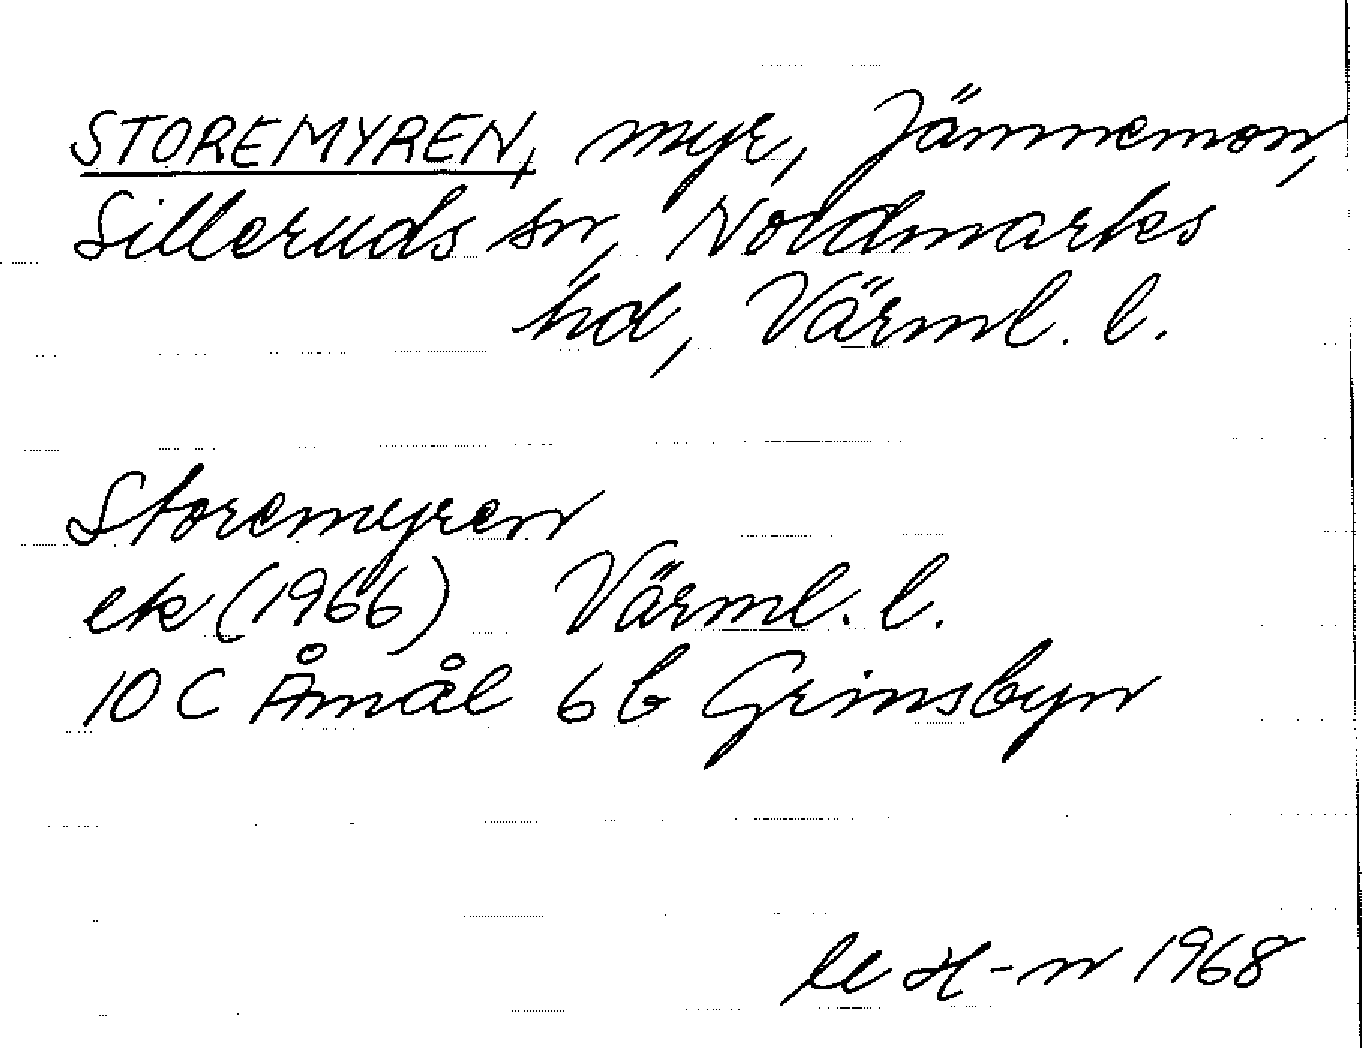 STOREMYREN, myr, Jämnemon,
Silleruds sn, Nordmarks
hd, Värml. l.
Storemyren
ek (1966) Värml. l.
10 C Åmål 6 b Grinsbyn
H-n 1968